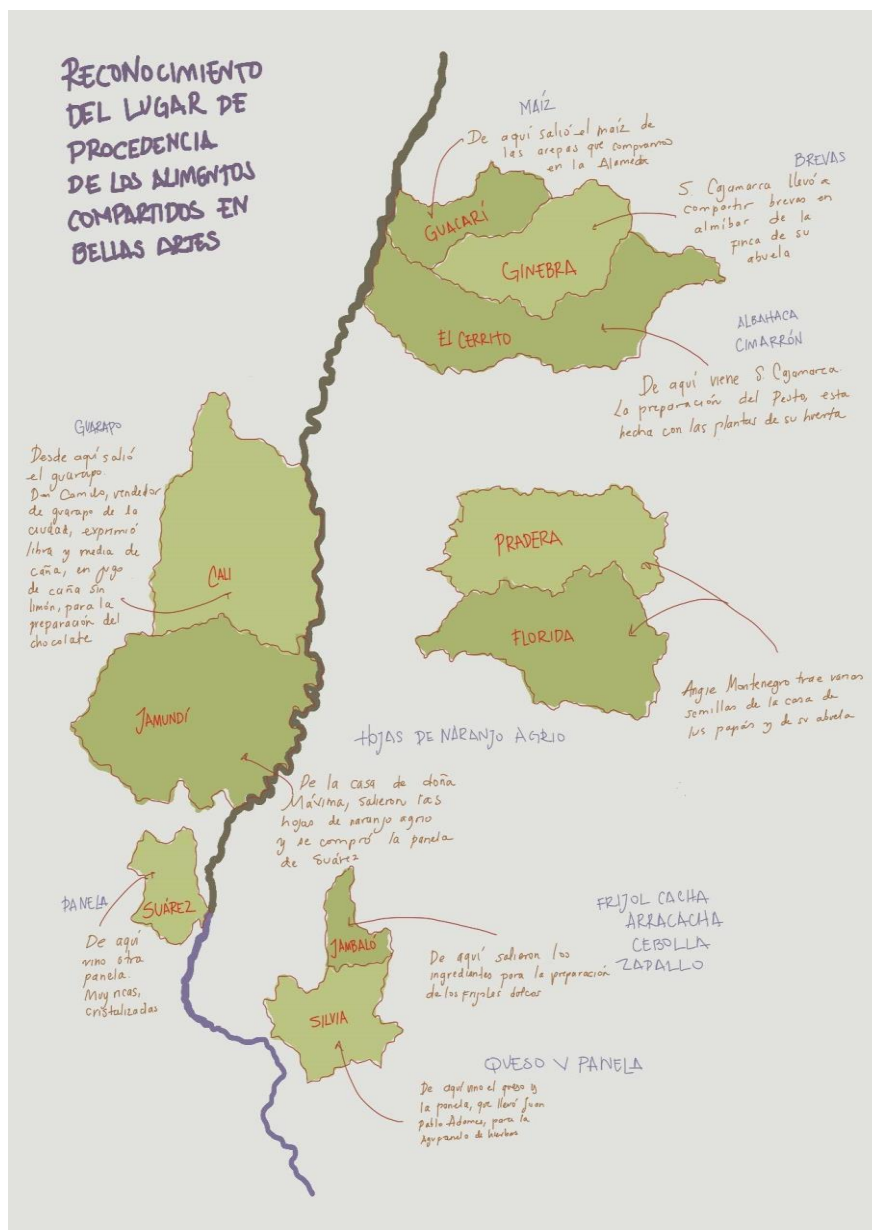 RECONOCIMIENTO
DEL LUGAR DE
PROCEDENCIA
DE LOS ALIMENTOS
COMPARTIDOS EN
BELLAS ARTES
MAÍZ
De aquí salió el maíz de
las arepas que compramos
en la Alameda
GUACARÍ
BREVAS
S. Cajamarca llevó a
compartir brevas en
almíbar de la
finca de su
abuela
GINEBRA
EL CERRITO
ALBAHACA
CIMARRÓN
De aquí viene S. Cajamarca.
La preparación del Pesto, esta
hecha con las plantas de su huerta
GUARAPO
Desde aquí salió
el guarapo.
Don Camilo, vendedor
de guarapo de la
ciudad, exprimió
libra y media de
caña, en jugo
de caña sin
limón, para la
preparación del
chocolate
CALI
PRADERA
FLORIDA
Angie Montenegro trae varias
semillas de la casa de
sus papás y de su abuela
JAMUNDÍ
HOJAS DE NARANJO AGRIO
De la casa de doña
Máxima, salieron las
hojas de naranjo agrio
y se compró la panela
de Suárez
PANELA
SUÁREZ
De aquí
vino otra
panela.
Muy ricas,
cristalizadas
FRIJOL CACHA
ARRACACHA
CEBOLLA
ZAPALLO
JAMBALÓ
De aquí salieron los
ingredientes para la preparación
de los frijoles dulces
SILVIA
QUESO Y PANELA
De aquí vino el queso y
la panela, que llevó Juan
Pablo Adames, para la
Agupanela de hierbas